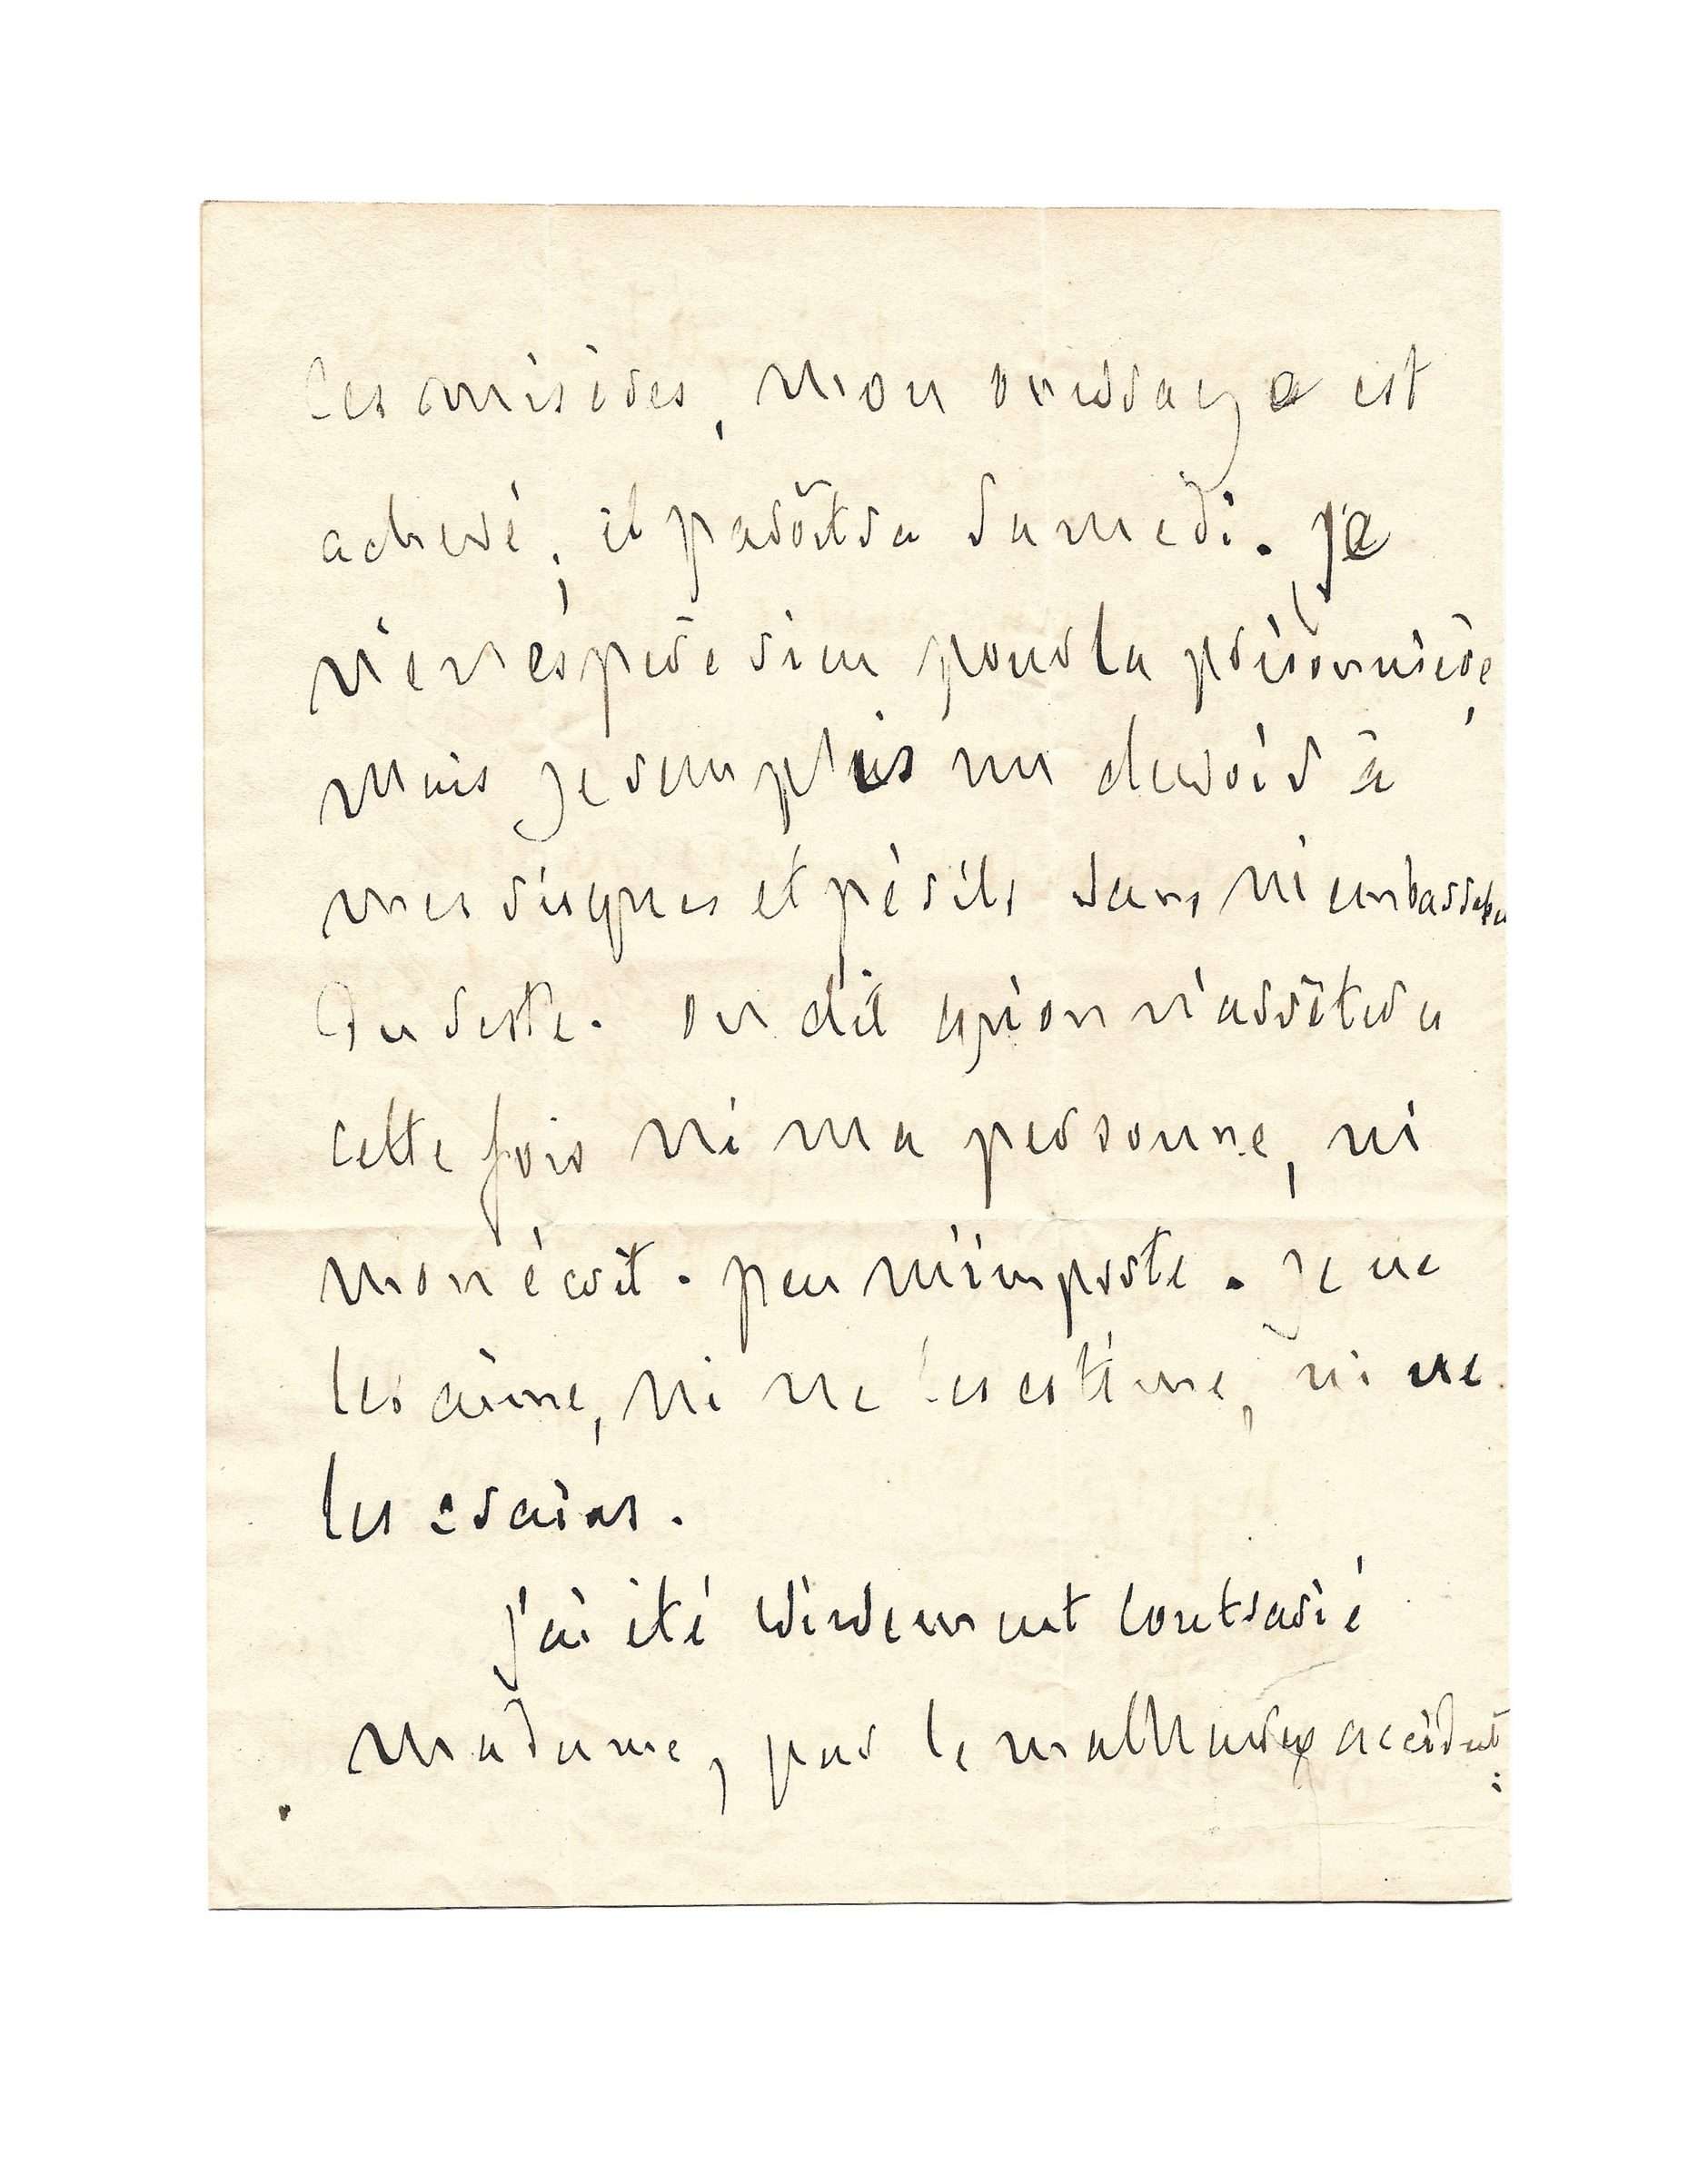 ces misères, mon ouvrage est
achevé ; il paroîtra samedi. Je
n'en espère rien pour la prisonnière,
mais je remplis un devoir à
mes risques et périls sans m'embarrasser
du reste. on dit qu'on n'arrêtera
cette fois ni ma personne, ni
mon écrit. peu m'importe. je ne
les aime, ni ne les estime, ni ne
les crains.
J'ai été vivement contrarié
Madame, par le malheureux accident